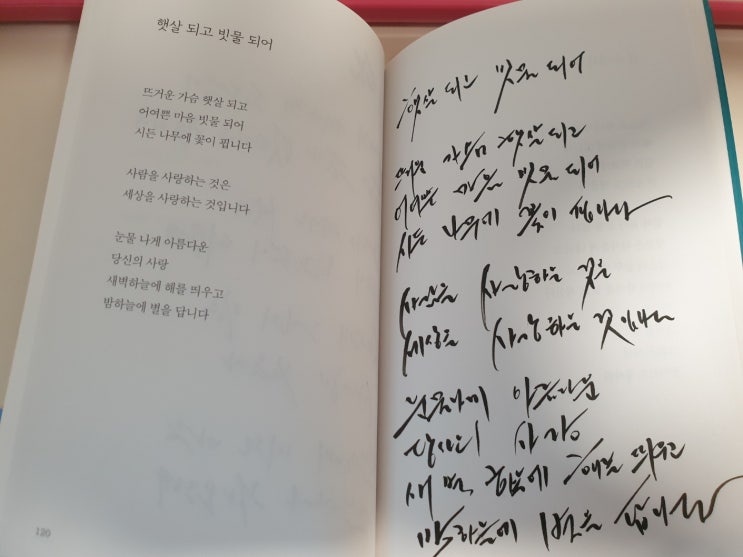 햇살 되고 빗물 되어
뜨거운 가슴 햇살 되고
어여쁜 마음 빗물 되어
시든 나무에 꽃이 핍니다
사람을 사랑하는 것은
세상을 사랑하는 것입니다
눈물 나게 아름다운
당신의 사랑
새벽하늘에 해를 띄우고
밤하늘에 별을 답니다
120
햇살 되고 빗물 되어
뜨거운 가슴 햇살 되고
어여쁜 마음 빗물 되어
시든 나무에 꽃이 핍니다
사람을 사랑하는 것은
세상을 사랑하는 것입니다
눈물나게 아름다운
당신의 사랑
새벽하늘에 해를 띄우고
밤하늘에 별을 답니다